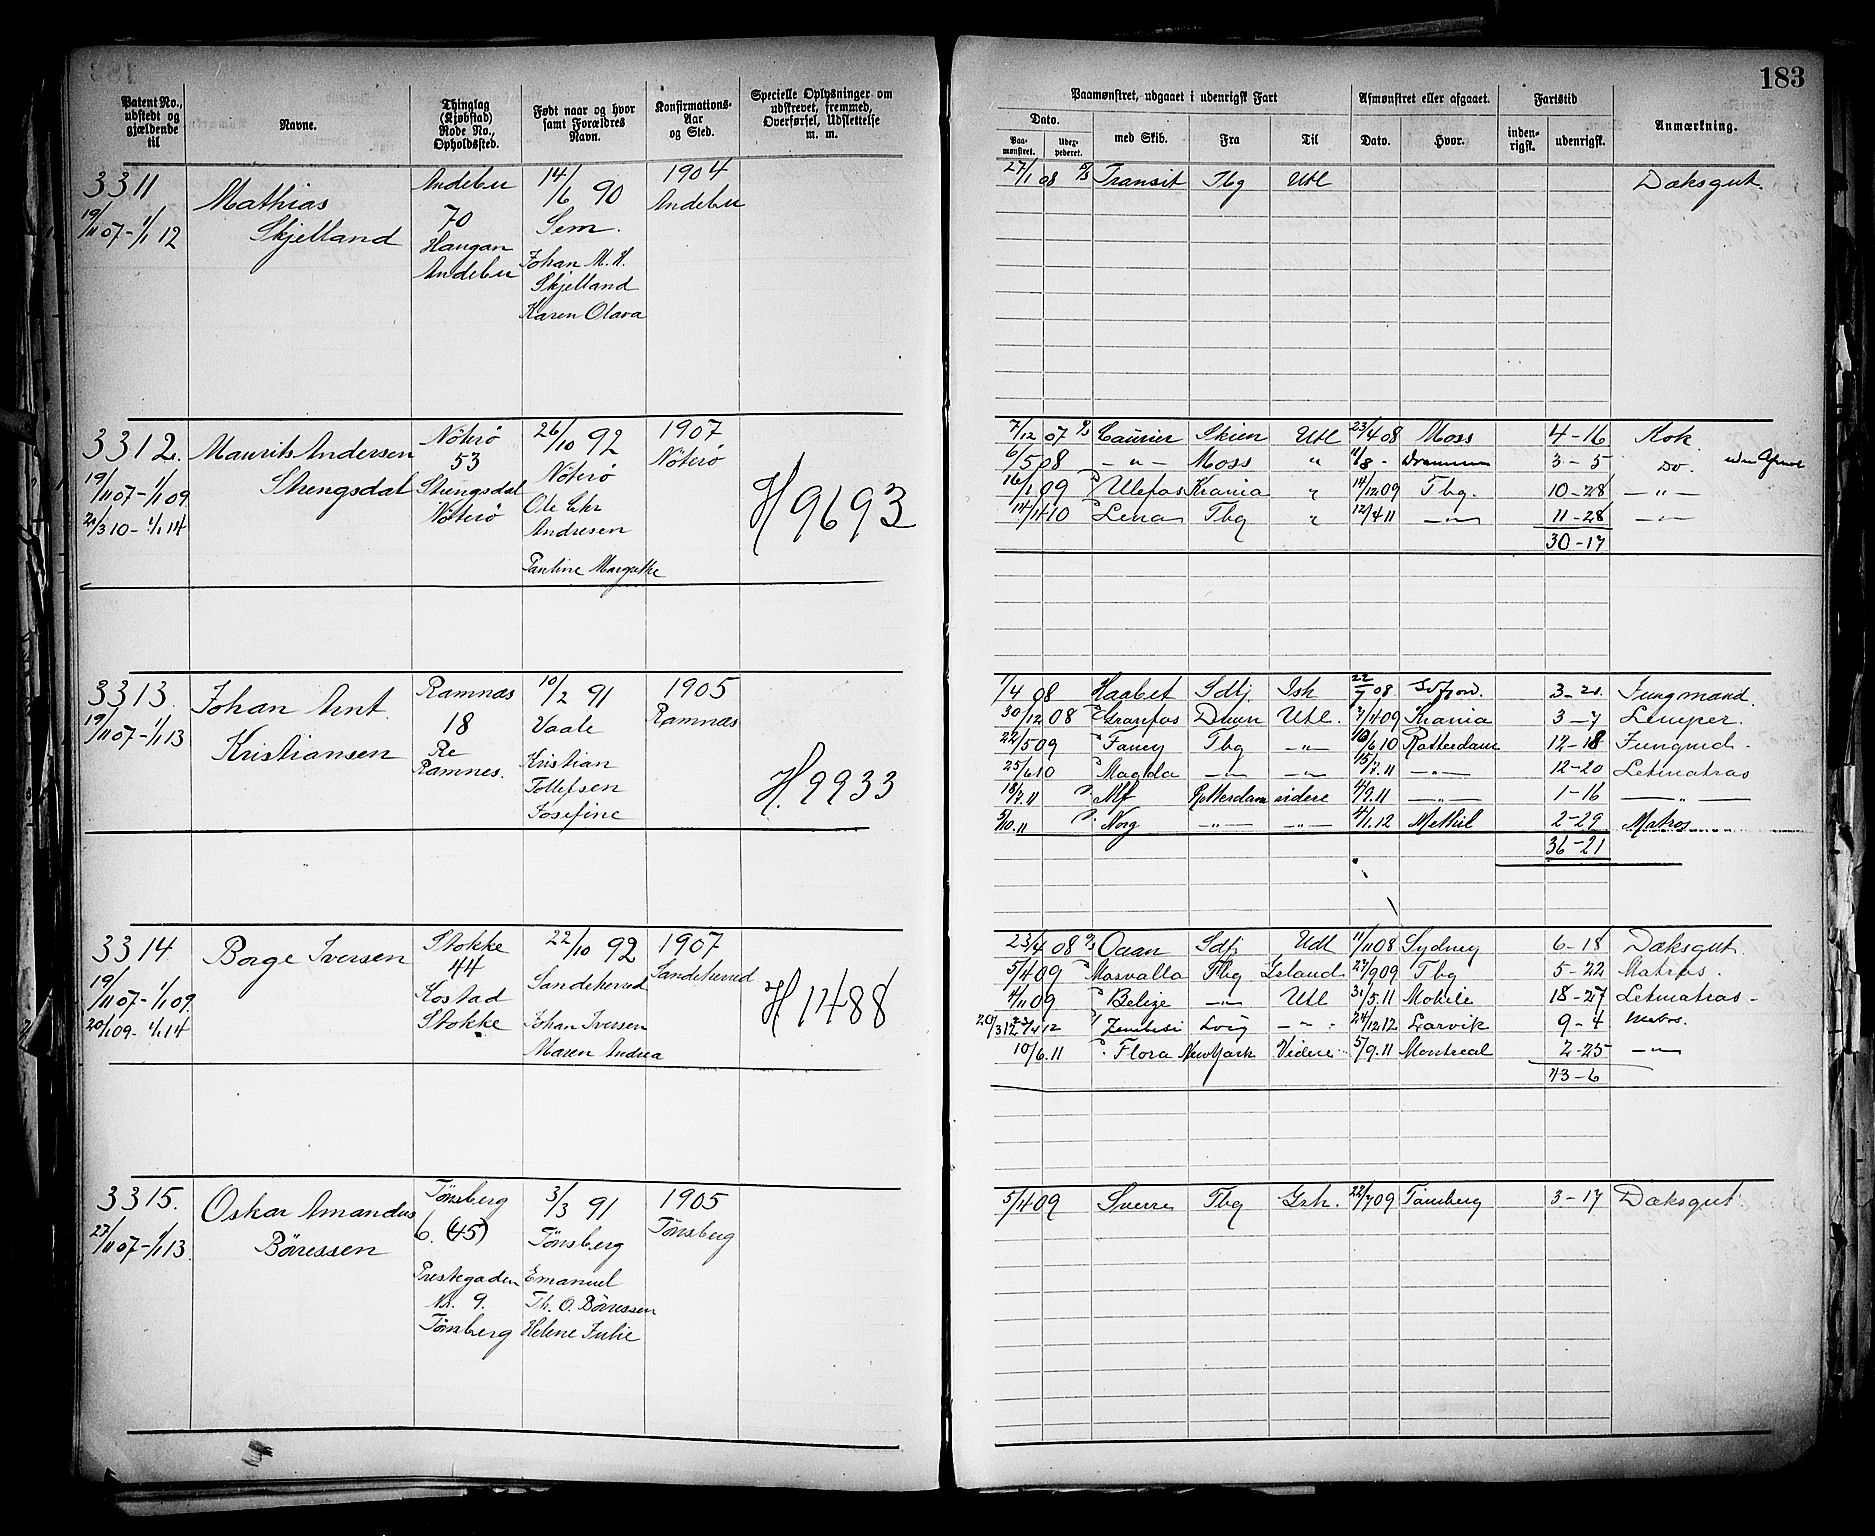 183
Patent No., udstedt og gjældende til
Navne.
Thinglag (Kjøbstad) Rode No., Opholdssted.
Født naar og hvor samt Forældres Navn.
Konfirmations-Aar og Sted.
Specielle Oplysninger om udskrevet, fremmed, Overførsel, Udslettelse m. m.
Paamønstret, udgaaet i udenrigsk Fart
Afmønstret eller afgaaet.
Fartstid
Anmærkning.
Dato.
Paa-mønstret.
med Skib.
Fra
Til
Dato.
Hvor.
inden-rigsk.
udenrigsk.
3311
19/11 07 - 1/1 12
Mathias
Skjelland
Andebu
70
Haugan
Andebu
14/6 90
Sem.
Johan M. H.
Skjelland
Karen Olava
1904
Andebu
27/1 08 Transit Tbg Utl Dæksgut.
3312.
19/11 07 - 1/1 09
21/3 10 - 1/1 14
Maurits Andersen
Strengsdal
Nöterö
53
Strengsdal
Nöterö
26/10 92
Nöterö
Ole Chr
Andresen
Pauline Margrethe
1907
Nöterö
H 9693
7/12 07 Caurier Skien Utl 23/4 08 Moss 4-16 Kok
6/5 08 -"- Moss " 11/8 - Drammen 3-5 Do.
16/1 09 Ulefos Krania " 14/12 09 Tbg. 10-28 -"-
14/4 10 Lena Tbg " 12/4 11 -"- 11-28 -"-
30-17
3313.
19/11 07 - 1/1 13
Johan Arnt
Kristiansen
Ramnæs
18
Re
Ramnes.
10/2 91
Vaale
Kristian
Tollefsen
Josefine
1905
Ramnæs
H. 9933
1/4 08 Haabet Sdfj Ish 22/7 08 3-21 Jungmand.
30/12 08 Granfos Dmn Utl. 7/4 09 Krania 3-7 Lemper.
22/5 09 Fancy Tbg -"- 10/6 10 Rotterdam 12-18 Jungmd.
25/6 10 Magda -"- -"- 15/7.11 -"- 12-20 Letmatros
18/7.11 Alf Rotterdam videre 4/9.11 -"- 1-16 -"-
5/10.11 Norg -"- -"- 4/1.12 Methil 2-29 Matros
36-21
3314.
19/11 07 - 1/1 09.
20/1 09 - 1/1 14
Borge Iversen
Stokke
44
Kostad
Stokke
22/10 92
Sandeherred
Johan Iversen
Maren Andrea
1907
Sandeherred
H 1488
23/4 08 Oaan Sdfj Udl 11/11 08 Sydney 6-18 Dæksgut.
5/4 09 Mosvalla Tbg Island 27/9 09 Tbg 5-22 Matros.
4/11 09 Belize -"- Utl 31/5.11 Mobile 18-27 Letmatros -
20/3 12 23/4 12 Zambesi Lvig -"- 24/12 12 Larvik 9-4 Matros.
10/6.11 Flora NewYork Videre 5/9.11 Montreal 2-25 -"-
43-6
3315.
27/11 07 - 1/1 13.
Oskar Amandus
Böressen
Tönsberg
6. (45)
Prestegaden
Nr. 9.
Tönsberg
3/3 91
Tönsberg
Emanuel
Th. O. Böressen
Helene Julie
1905
Tönsberg
5/4 09 Sverre Tbg Grh. 22/7 09 Tönsberg 3-17 Dæksgut.